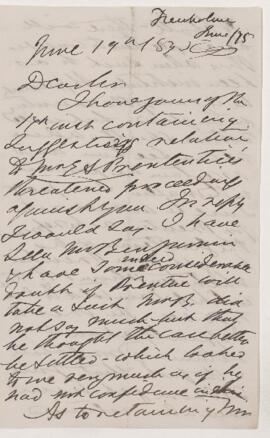 Trenholm
June /75
June 19th 1875
Dear Sir
I have yours of the
17th inst containing
suggestions relative
to Mr E S Prentice's
threatened proceedings
against you. In reply
I would say - I have
seen Mr Benjamin
& have some considerable
indeed
doubt if Prentice will
take a suit. Mr B. did
not say much - but that
he thought the case better
be settled - which looked
to me very much as if he
had not confidence in
As to retaining Mr